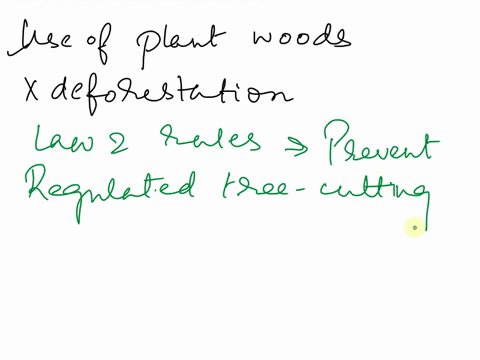 Use of plant woods
X deforestation
Law & rules ⇒ Prevent
Regulated tree-cutting